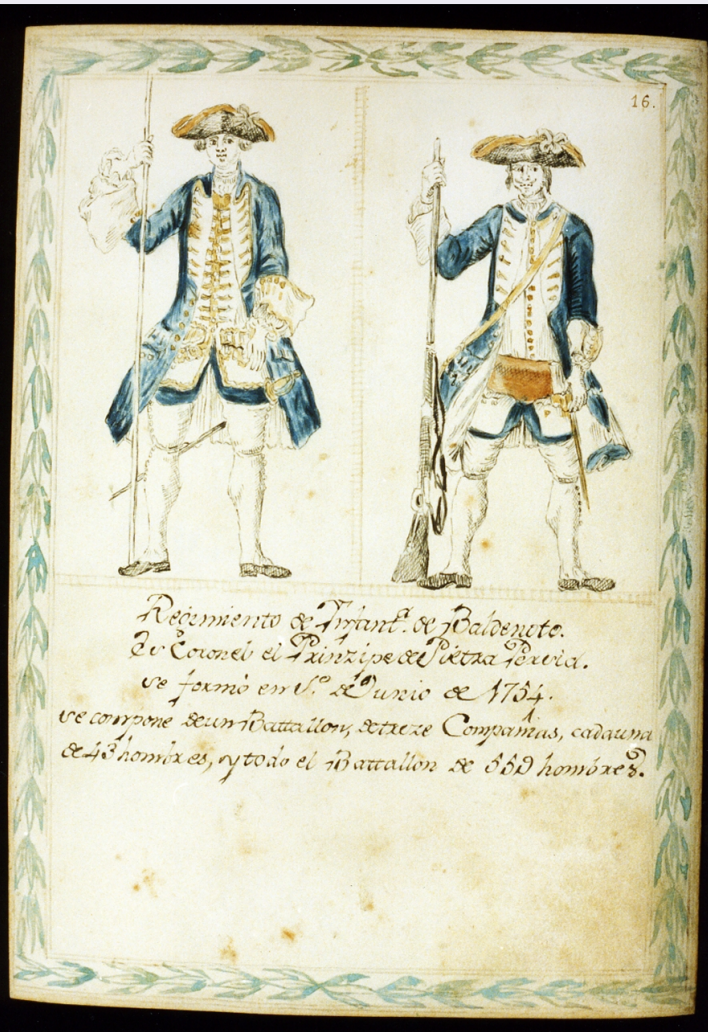 16.
Regimiento de Infantª. de Baldenoto.
Es Coronel el Prinzipe de Pietra Percia.
se formó en Pº. de Junio de 1754.
se compone de un Battallon, de treze Compañias, cada una
de 43 hombres, y todo el Battallon de 559 hombres.